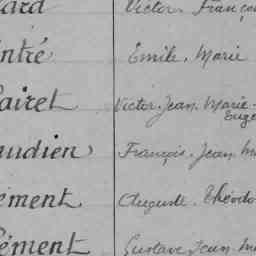 ard Victor, Franço
ntré Emile, Marie
airet Victor, Jean, Marie-
Euge
audien François, Jean, Ma
ément Auguste, Théodo
lément Gustave, Jean, Ma